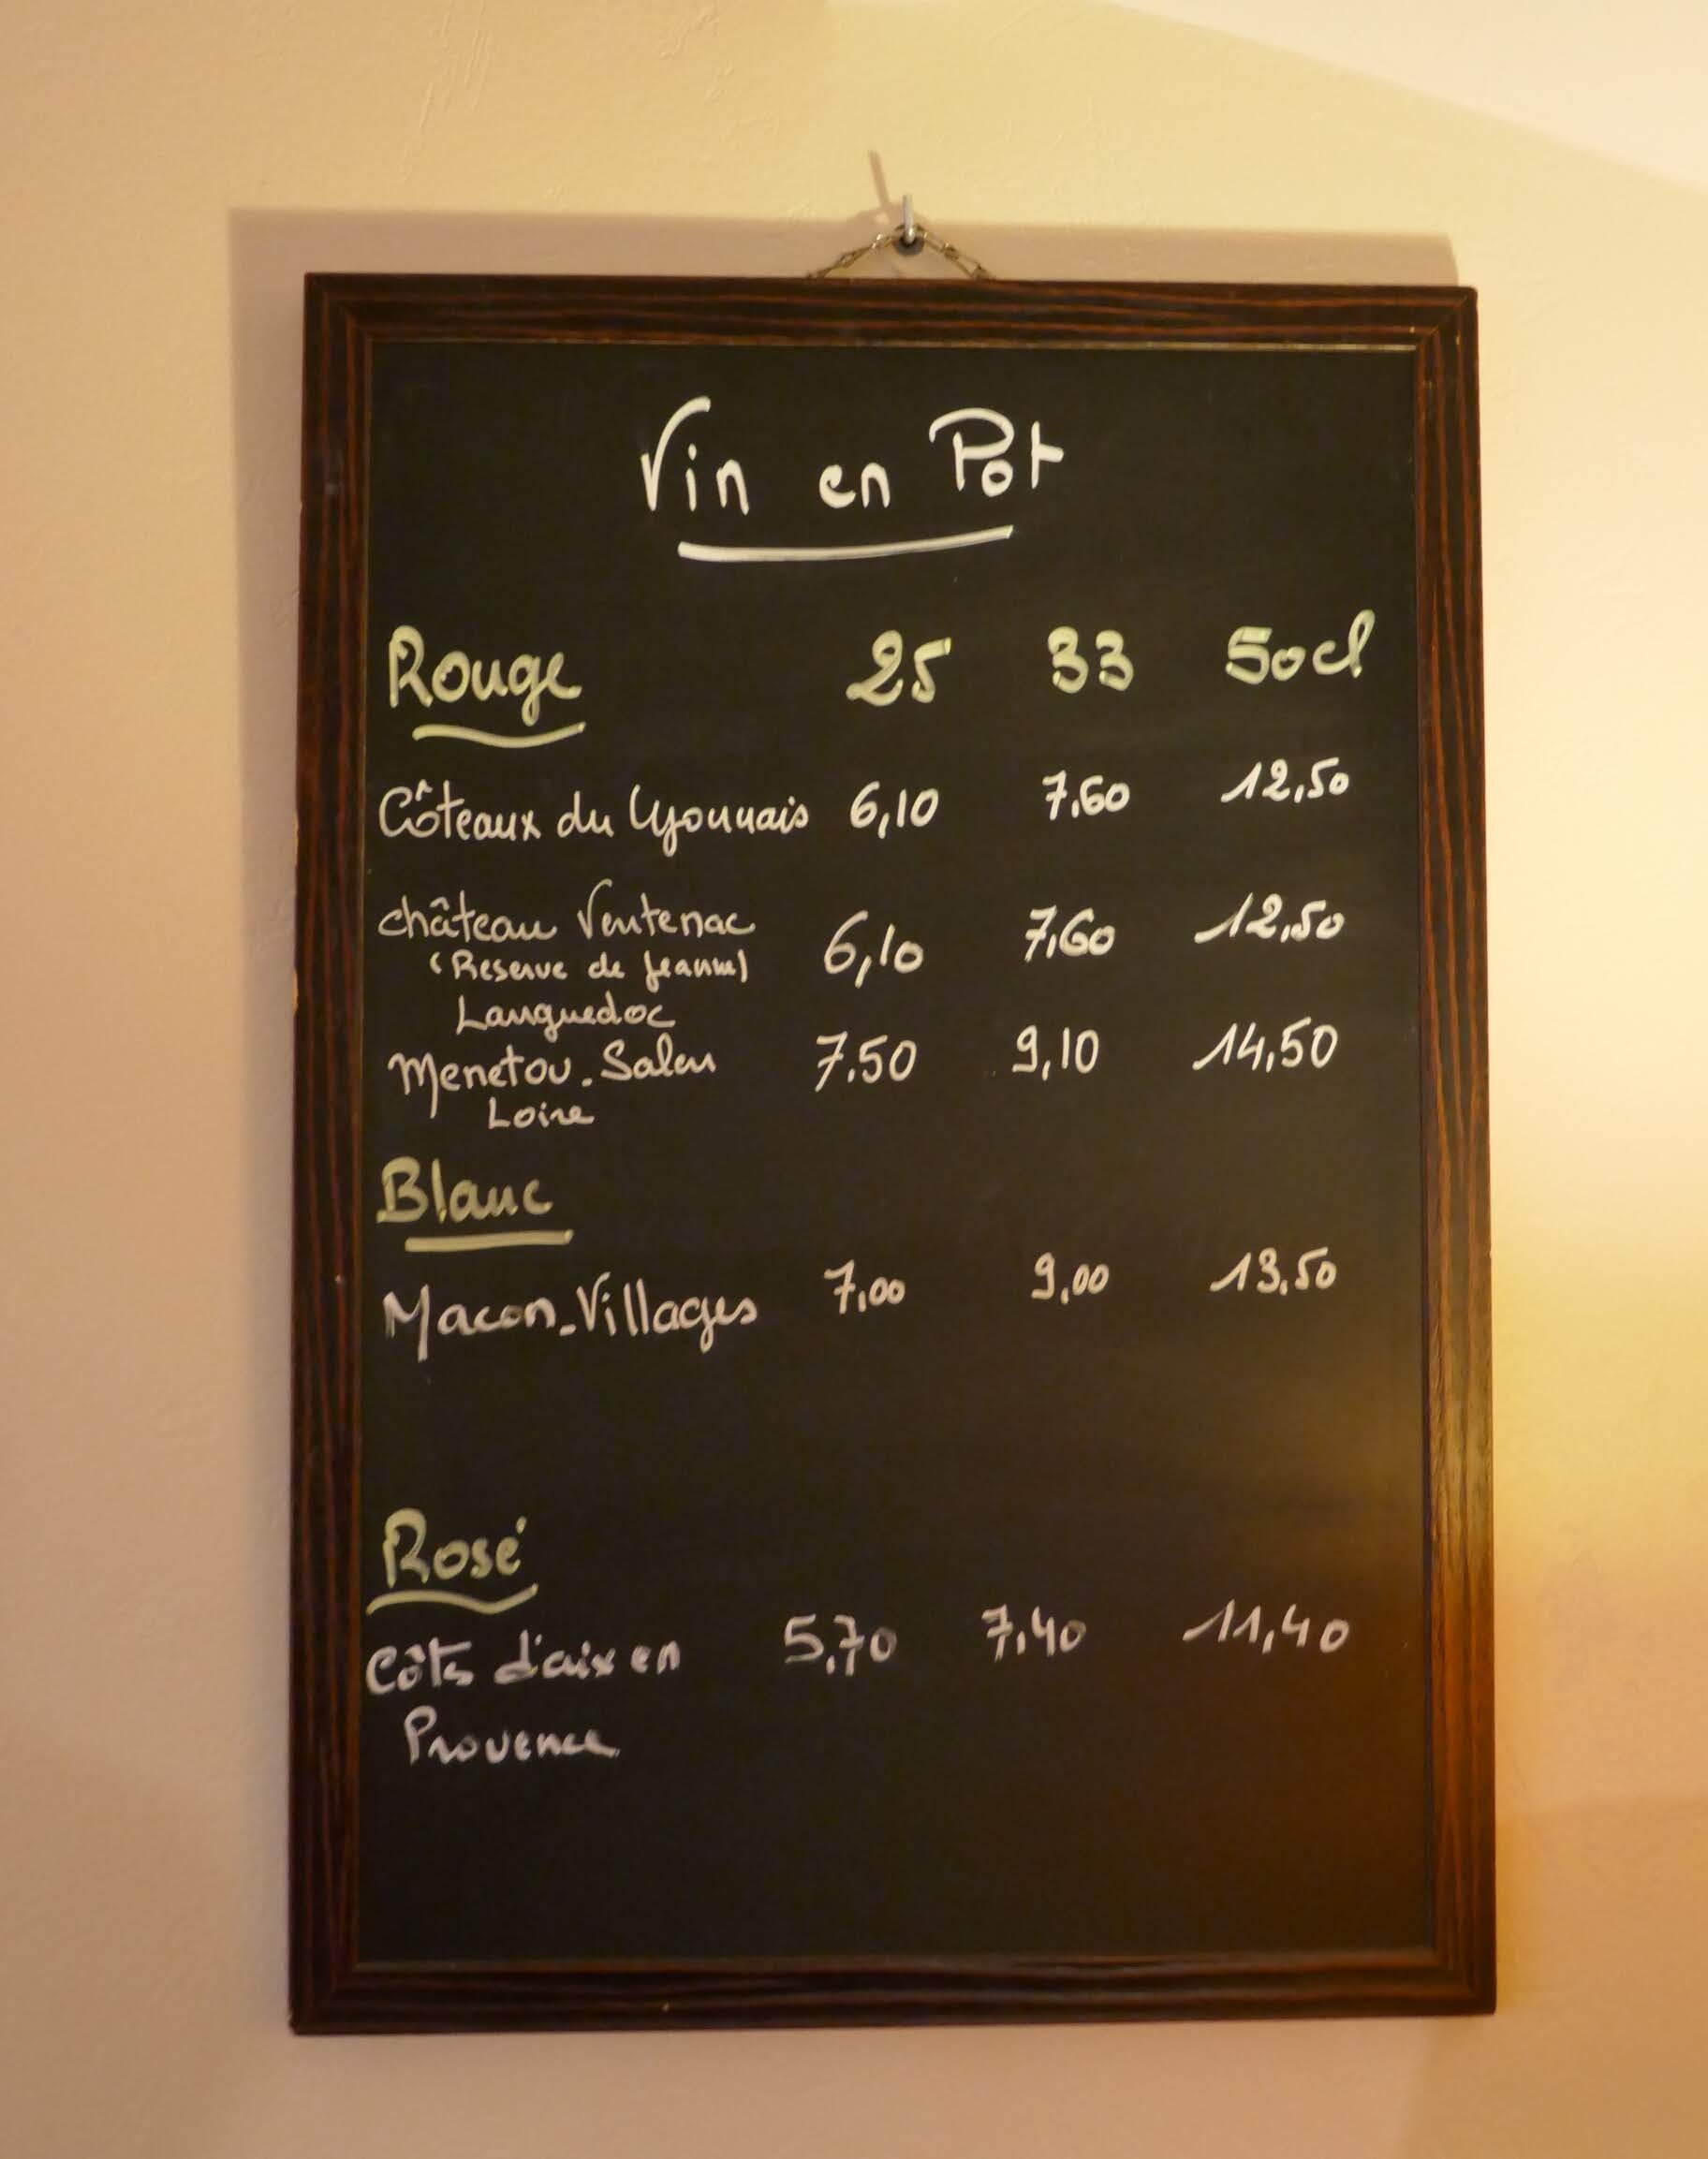 Vin en Pot
Rouge 25 33 50cl
Côteaux du Lyonnais 6,10 7,60 12,50
Château Ventenac 6,10 7,60 12,50
(Reserve de Jeanne)
Languedoc
Menetou-Salon 7,50 9,10 14,50
Loire
Blanc
Macon-Villages 7,00 9,00 13,50
Rosé
Côts d'aix en 5,70 7,40 11,40
Provence